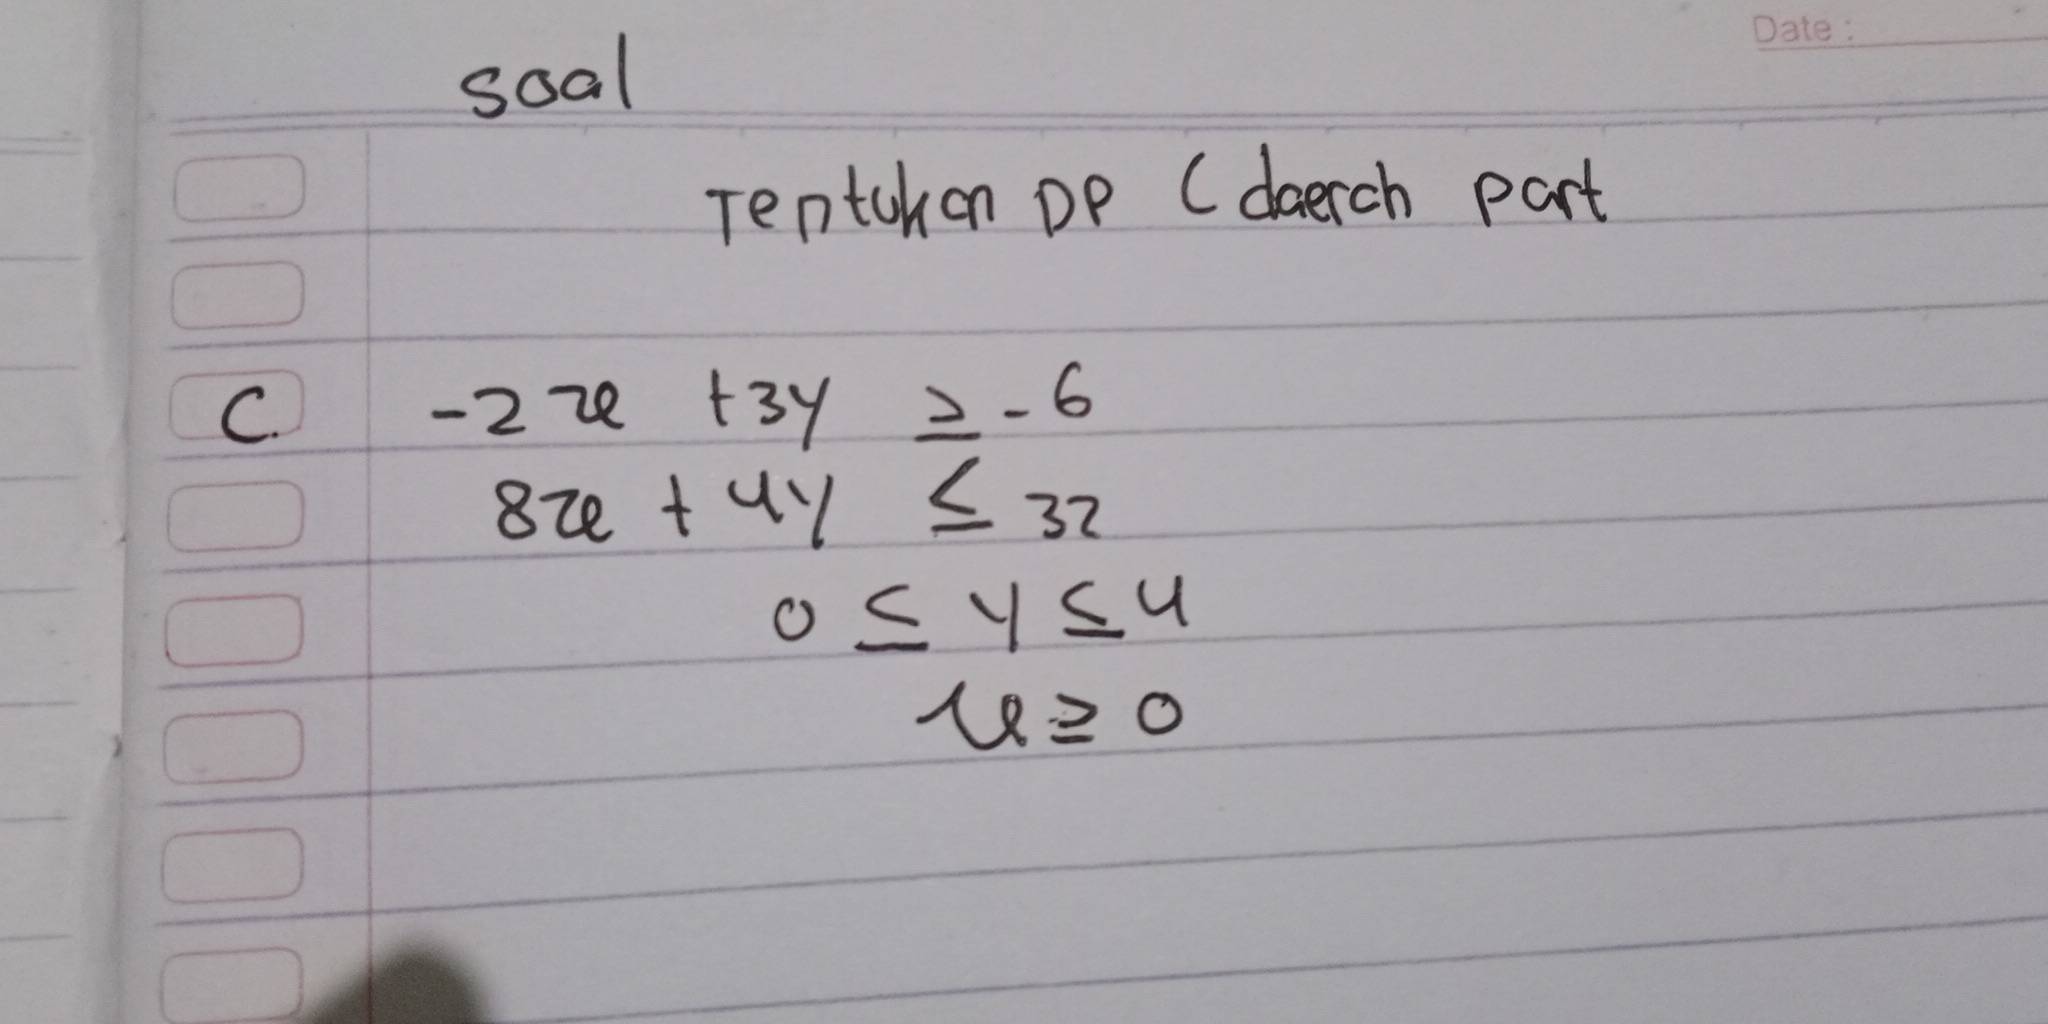 Date :
soal
Tentukan DP ( daerah part
C. -2x + 3y ≥ -6
8x + 4y ≤ 32
0 ≤ y ≤ 4
x ≥ 0